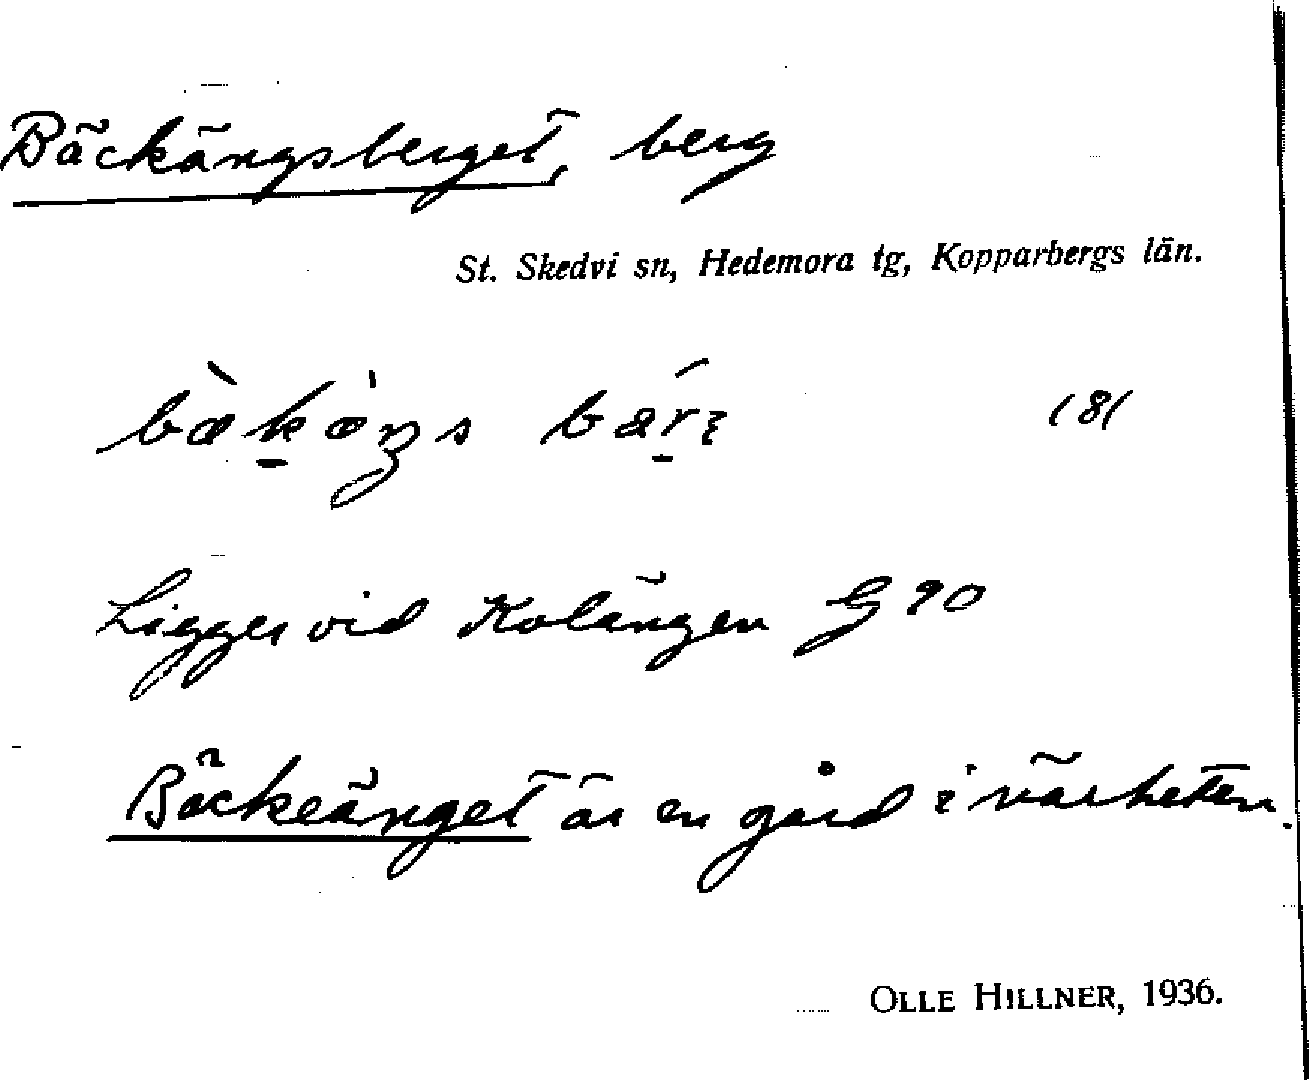 Bäckängsberget, berg
St. Skedvi sn, Hedemora tg, Kopparbergs län.
(8(
Ligger vid Kolängen G 90
Bäckeänget är en gård i närheten.
OLLE HILLNER, 1936.